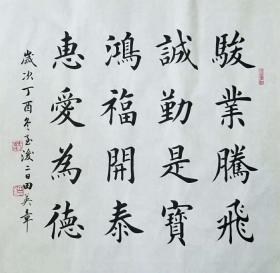 駿業騰飛
誠勤是寶
鴻福開泰
惠愛為德
歲次丁酉冬至後二日田英章